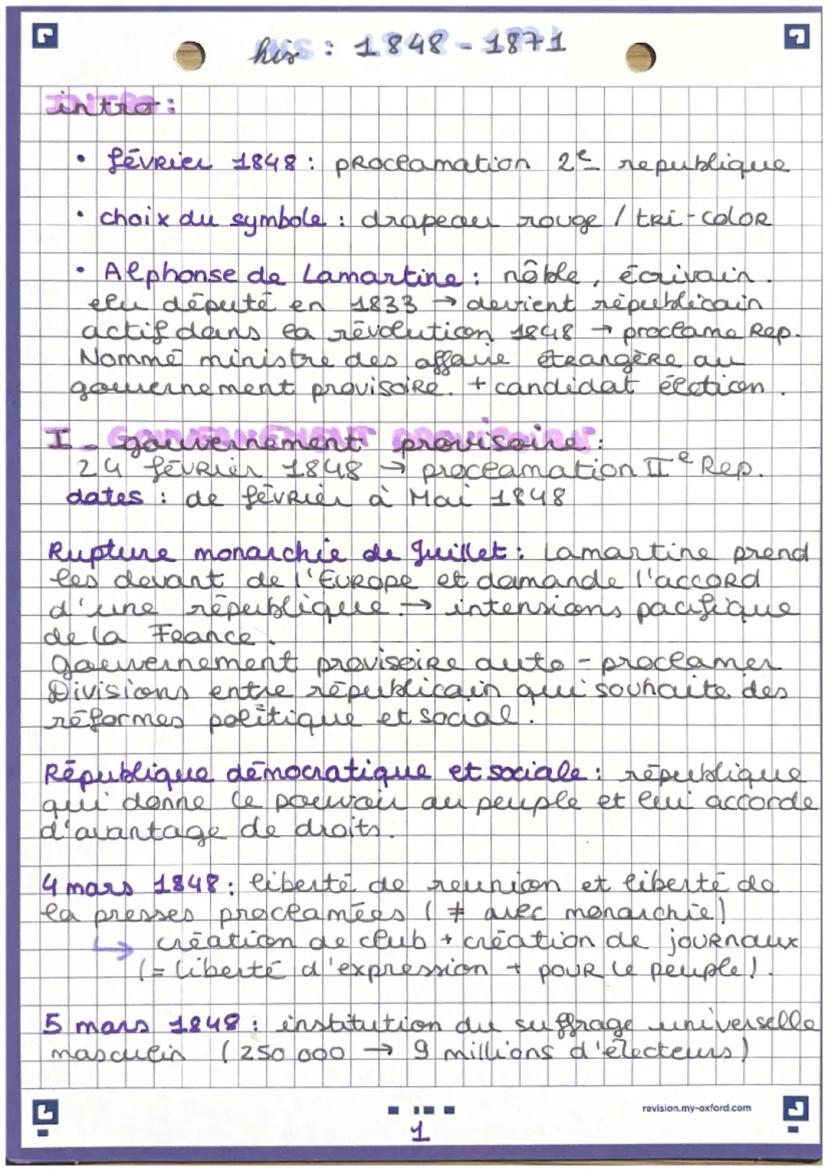 his : 1848 - 1871
intro :
• février 1848 : proclamation 2e republique
• choix du symbole : drapeau rouge / tri-color
• Alphonse de Lamartine : nôble, écrivain.
elu député en 1833 → devient républicain
actif dans la révolution 1848 → proclame Rep.
Nommé ministre des affaire étrangère au
gouvernement provisoire. + candidat élection.
I - gouvernement provisoire :
24 février 1848 → proclamation IIe Rep.
dates : de février à Mai 1848
Rupture monarchie de Juillet : Lamartine prend
les devant de l'Europe et demande l'accord
d'une république → intensions pacifique
de la France.
gouvernement provisoire auto - proclamer
Divisions entre républicain qui souhaite des
réformes politique et social.
République démocratique et sociale : république
qui donne le pouvoir au peuple et lui accorde
d'avantage de droits.
4 mars 1848 : liberté de reunion et liberté de
la presses proclamées ( ≠ avec monarchie)
↳ création de club + création de journaux
(= liberté d'expression + pour le peuple).
5 mars 1848 : institution du suffrage universelle
masculin ( 250 000 → 9 millions d'électeurs)
revision.my-oxford.com
1